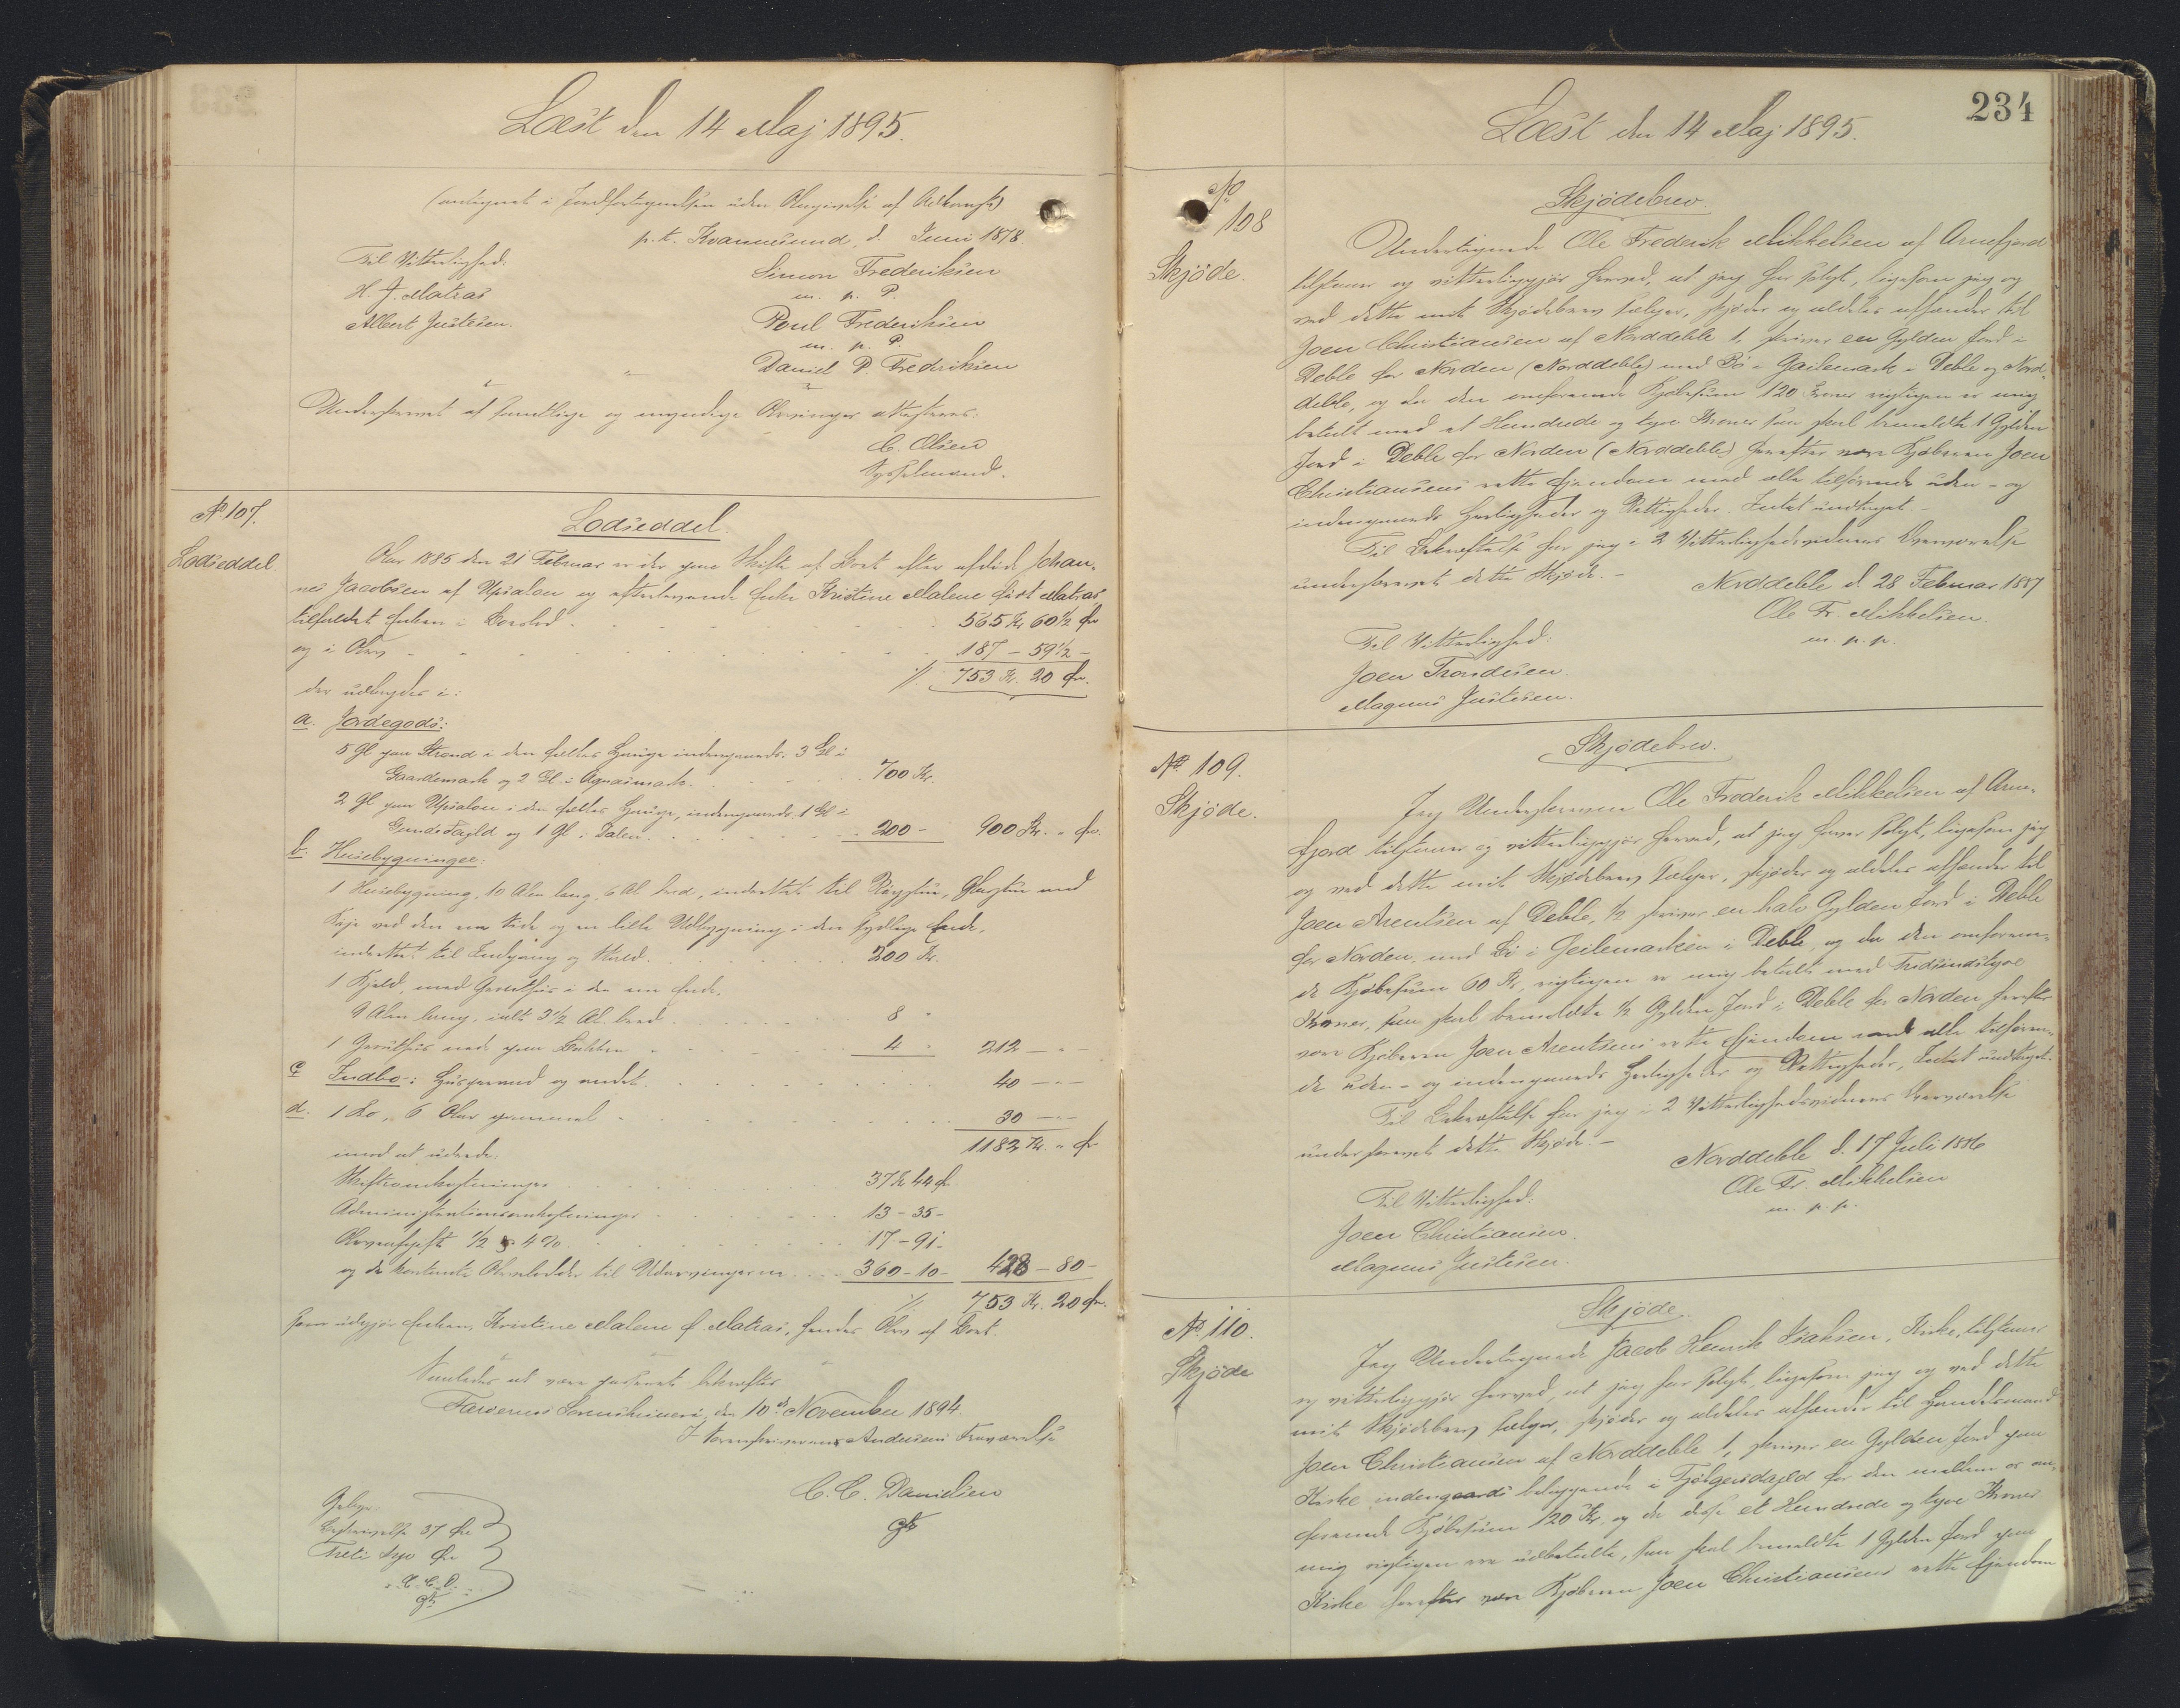 Læst den 14 Maj 1895.
(antegnet i Jordfortegnelsen uden Angivelse af Adkomst)
p. t. Kvannesund, d. Juni 1878.
Til Vitterlighed:
Simon Frederiksen
m. p. P.
H. J. Matras
Albert Justesen.
Poul Frederiksen
m. p. P.
Daniel P. Fredriksen
Underskrevet af samtlige og myndige Arvinger attesteres:
C. Olsen
Sysselmand.
No. 107.
Lodseddel.
Lodseddel
Aar 1885 den 21 Februar er der paa Skifte af Boet efter afdøde Johan-
nes Jacobsen af Upsalen og efterlevende Enke Kristine Malene født Matras
tilfaldet Enken i Boeslod 565 Kr 60½ Øre
og i Arv 187 - 59½ -
./. 753 Kr. 20 Øre.
der udlægges i:
a. Jordegods:
5 Gl paa Strond i den fælles Hauge indengaards. 3 Gl i
Gaardemark og 2 Gl. i Agnasmark. 700 Kr.
2 Gl paa Upsalen i den fælles Hauge, indengaards 1 Gl i
og 1 Gl. i Dalen 200 - 900 Kr. " Øre.
b. Husebygninger:
1 Husebygning, 10 Alen lang, 6 Al. bred, indrettet til Røgstue, Glasstue med
Køje ved den ene Side og en lille Udbygning i den sydlige Ende,
indrettet til Indgang og Skred. 200 Kr.
1 Hjeld, med i den ene Ende,
9 Alen lang, ialt 3½ Al. bred 8 "
1 nede paa Bakken 4 " 212 - " -
c. Indbo-: Husgeraad og andet 40 - " -
d. 1 Ko, 6 Aar gammel 30 - " -
1182 Kr. " Øre
imod at udrede:
Skifteomkostninger 37 Kr 44 Øre
Administrationsomkostninger 13 - 35 -
Arveafgift ½ & 4% 17 - 91 -
og de kontante Arvelodder til Udarvingerne 360 - 10 - 428 - 80 -
./. 753 Kr. 20 Øre.
som udgjør Enken, Kristine Malene f. Matras, hendes Arv af Boet.
Saaledes at være passeret bekræftes
Færøernes Sorenskriveri, den 10de November 1894.
I Sorenskriverens Andersens Fraværelse
C. C. Danielsen
gst.
Gebyr:
Beskrivelse 37 Øre
Treti Syv Øre
C. C. D.
gst
234
Læst den 14 Maj 1895.
No 108
Skjøde.
Skjødebrev
Undertegnede Ole Frederik Mikkelsen af Arnefjord
tilstaaer og vitterliggjør herved, at jeg har solgt, ligesom jeg og
ved dette mit Skjødebrev sælger, skjøder og aldeles afhænder til
Joen Christiansen af Norddeble 1, skriver en Gylden Jord i
Deble for Norden (Norddeble) med Bø i Gailemark i Deble og Nord-
deble, og da den omforenede Kjøbesum 120 Kroner rigtigen er mig
betalt med et Hundrede og tyve Kroner saa skal bemeldte 1 Gylden
Jord i Deble for Norden (Norddeble) herefter være Kjøberen Joen
Christiansens rette Ejendom med alle tilhørende uden- og
indengaards Herligheder og Rettigheder. Intet undtaget.
Til Bekræftelse har jeg i 2 Vitterlighedsvidners Overværelse
underskrevet dette Skjøde.-
Norddeble d. 28 Februar 1887
Ole Fr. Mikkelsen.
m. p. p.
Til Vitterlighed:
Joen Trondesen.
Magnus Justesen.
No. 109.
Skjøde.
Skjødebrev.
Jeg Underskreven Ole Frederik Mikkelsen af Arne-
fjord tilstaaer og vitterliggjør herved, at jeg haver solgt, ligesom jeg
og ved dette mit Skjødebrev sælger, skjøder og aldeles afhænder til
Joen Arentsen af Deble, ½ skriver en halv Gylden Jord i Deble
for Norden, med Bø i Geilemarken i Deble, og da den omforene-
de Kjøbesum 60 Kr, rigtigen er mig betalt med Tredsindstyve
Kroner, saa skal bemeldte ½ Gylden Jord i Deble for Norden herefter
være Kjøberen Joen Arentsens rette Ejendom med alle tilhøren-
de uden- og indengaards Herligheder og Rettigheder, Intet undtaget.
Til Bekræftelse har jeg i 2 Vitterlighedsvidners Overværelse
underskrevet dette Skjøde.-
Norddeble d. 17 Juli 1886
Ole Fr. Mikkelsen
m. p. p.
Til Vitterlighed:
Joen Christiansen.
Magnus Justesen.
No. 110.
Skjøde
Skjøde.
Jeg Undertegnede Jacob Henrik Isaksen, Kirke, tilstaaer
og vitterliggjør herved, at jeg har solgt, ligesom jeg og ved dette
mit Skjødebrev sælger, skjøder og aldeles afhænder til Handelsmand
Joen Christiansen af Norddeble 1, skriver en Gylden Jord paa
Kirke indengaards beliggende i Tjølgersdajld for den mellem os om-
forenede Kjøbesum 120 Kr, og da disse et Hundrede og tyve Kroner
mig rigtigen ere udbetalte, saa skal bemeldte 1 Gylden Jord paa
Kirke herefter være Kjøberen Joen Christiansens rette Ejendom